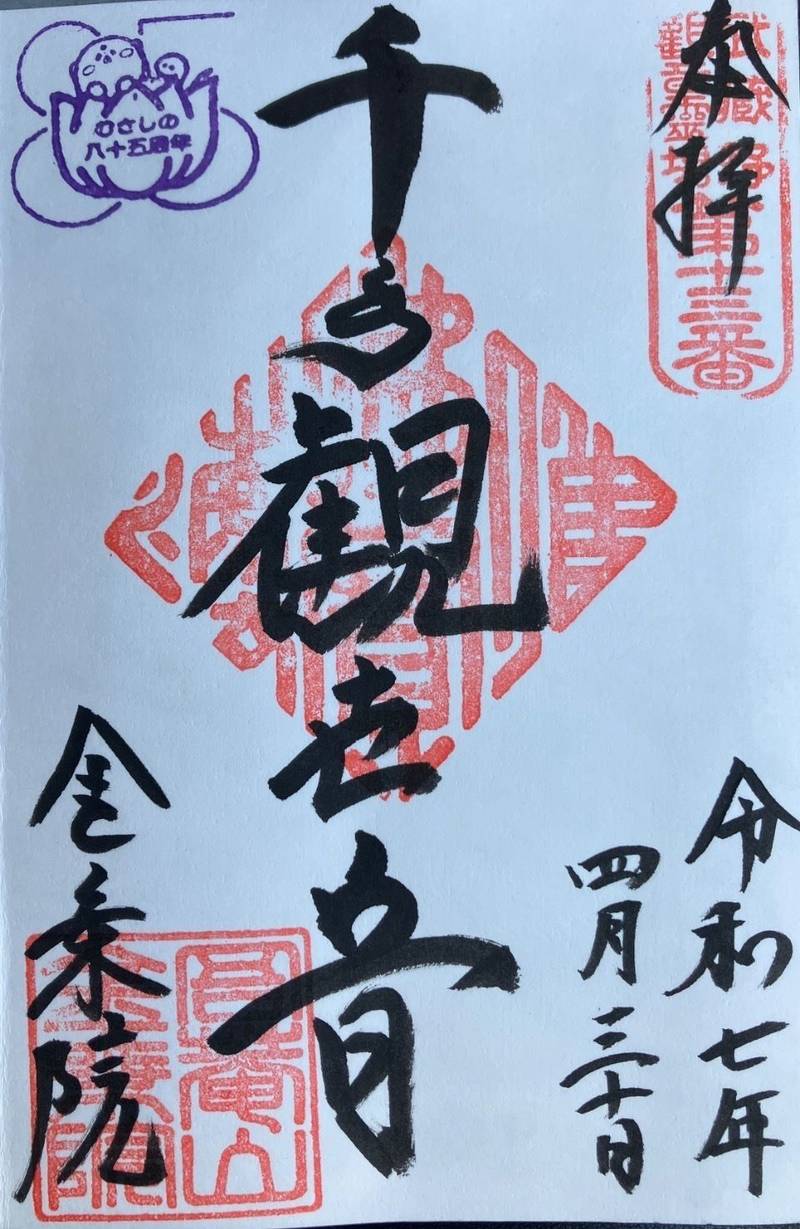 奉拝
武蔵野
観音霊場
第十三番
令和七年
四月三十日
千手観世音
むさしの
八十五周年
金乗院
高菴山
金乗院